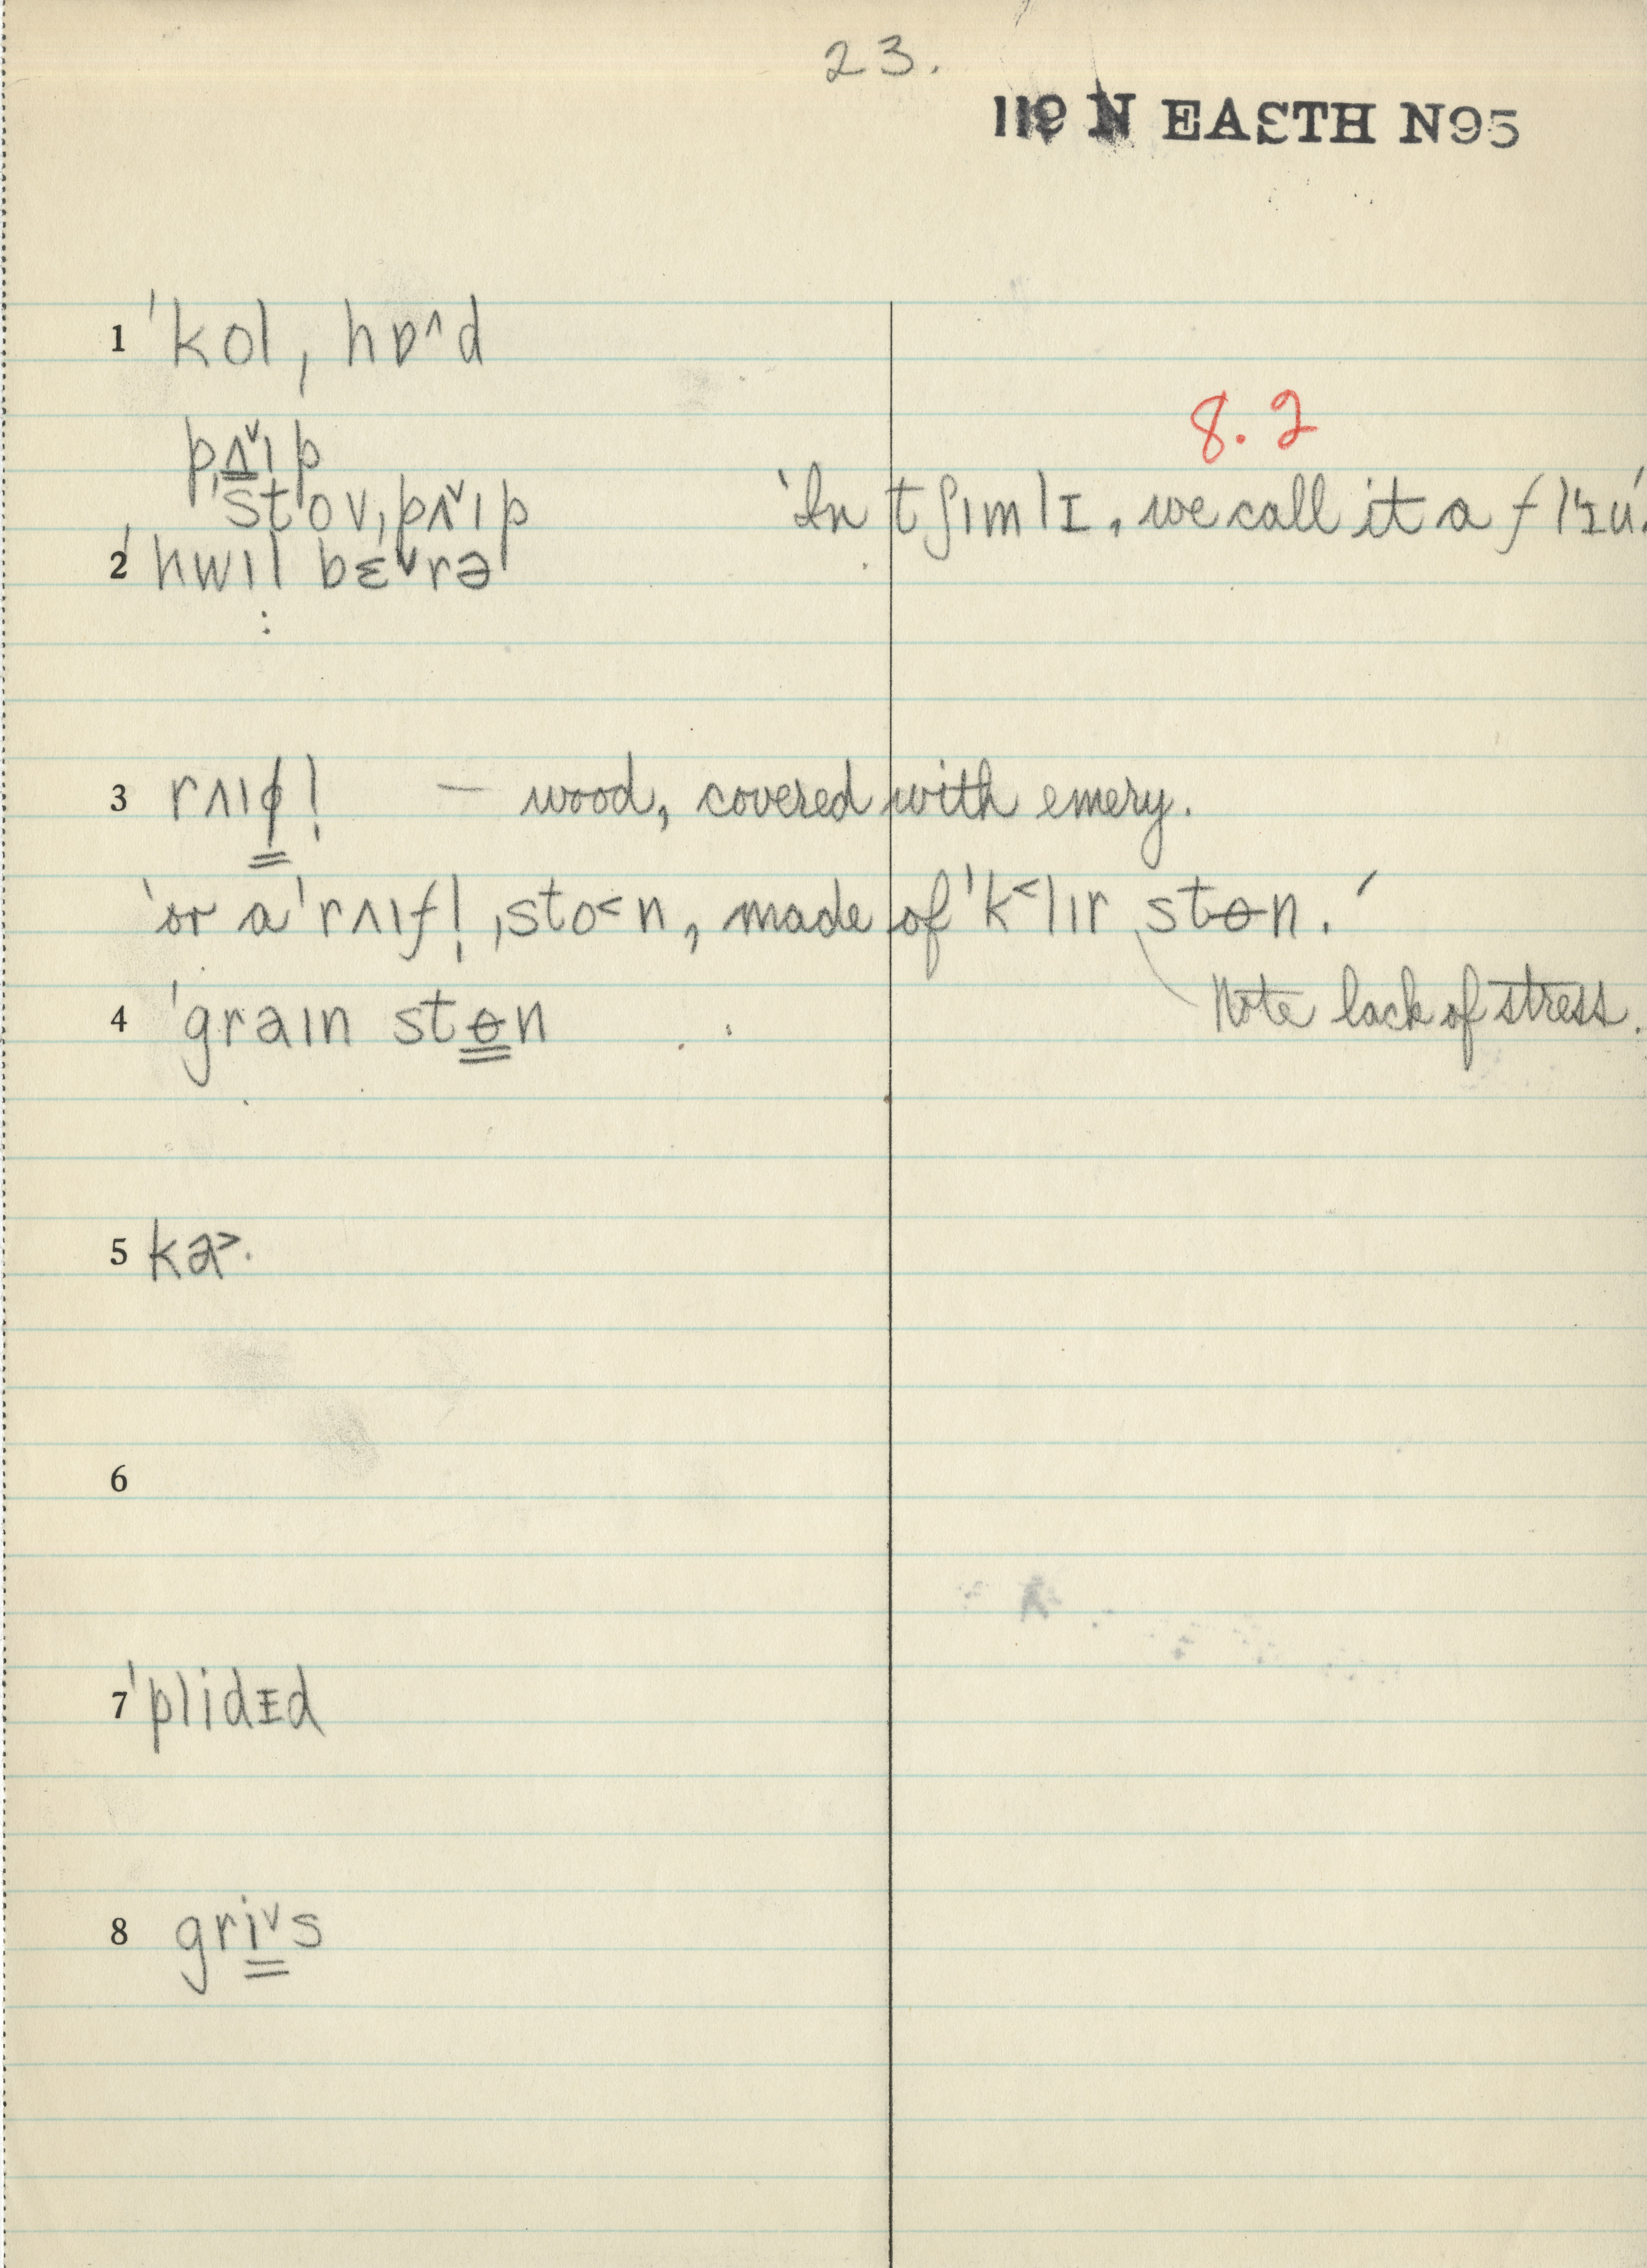 23.
119 N EASTH N95
1 ˈkol ˌhɒ^d
8.2
pʌ̬ɪp
ˈstovˌpʌ̬ɪp 'In tʃɪmlɪ, we call it a flɪu.'
2 ˈhwɪl bɛ̬rə
3 rʌɪɸ! — wood, covered with emery.
'or a ˈrʌɪf! ˌsto<n, made of ˈk<lɪr stɵn.'
Note lack of stress.
4 ˈgraɪn stɵn
5 ka>.
6
7 ˈplidɪd
8 gri̬s